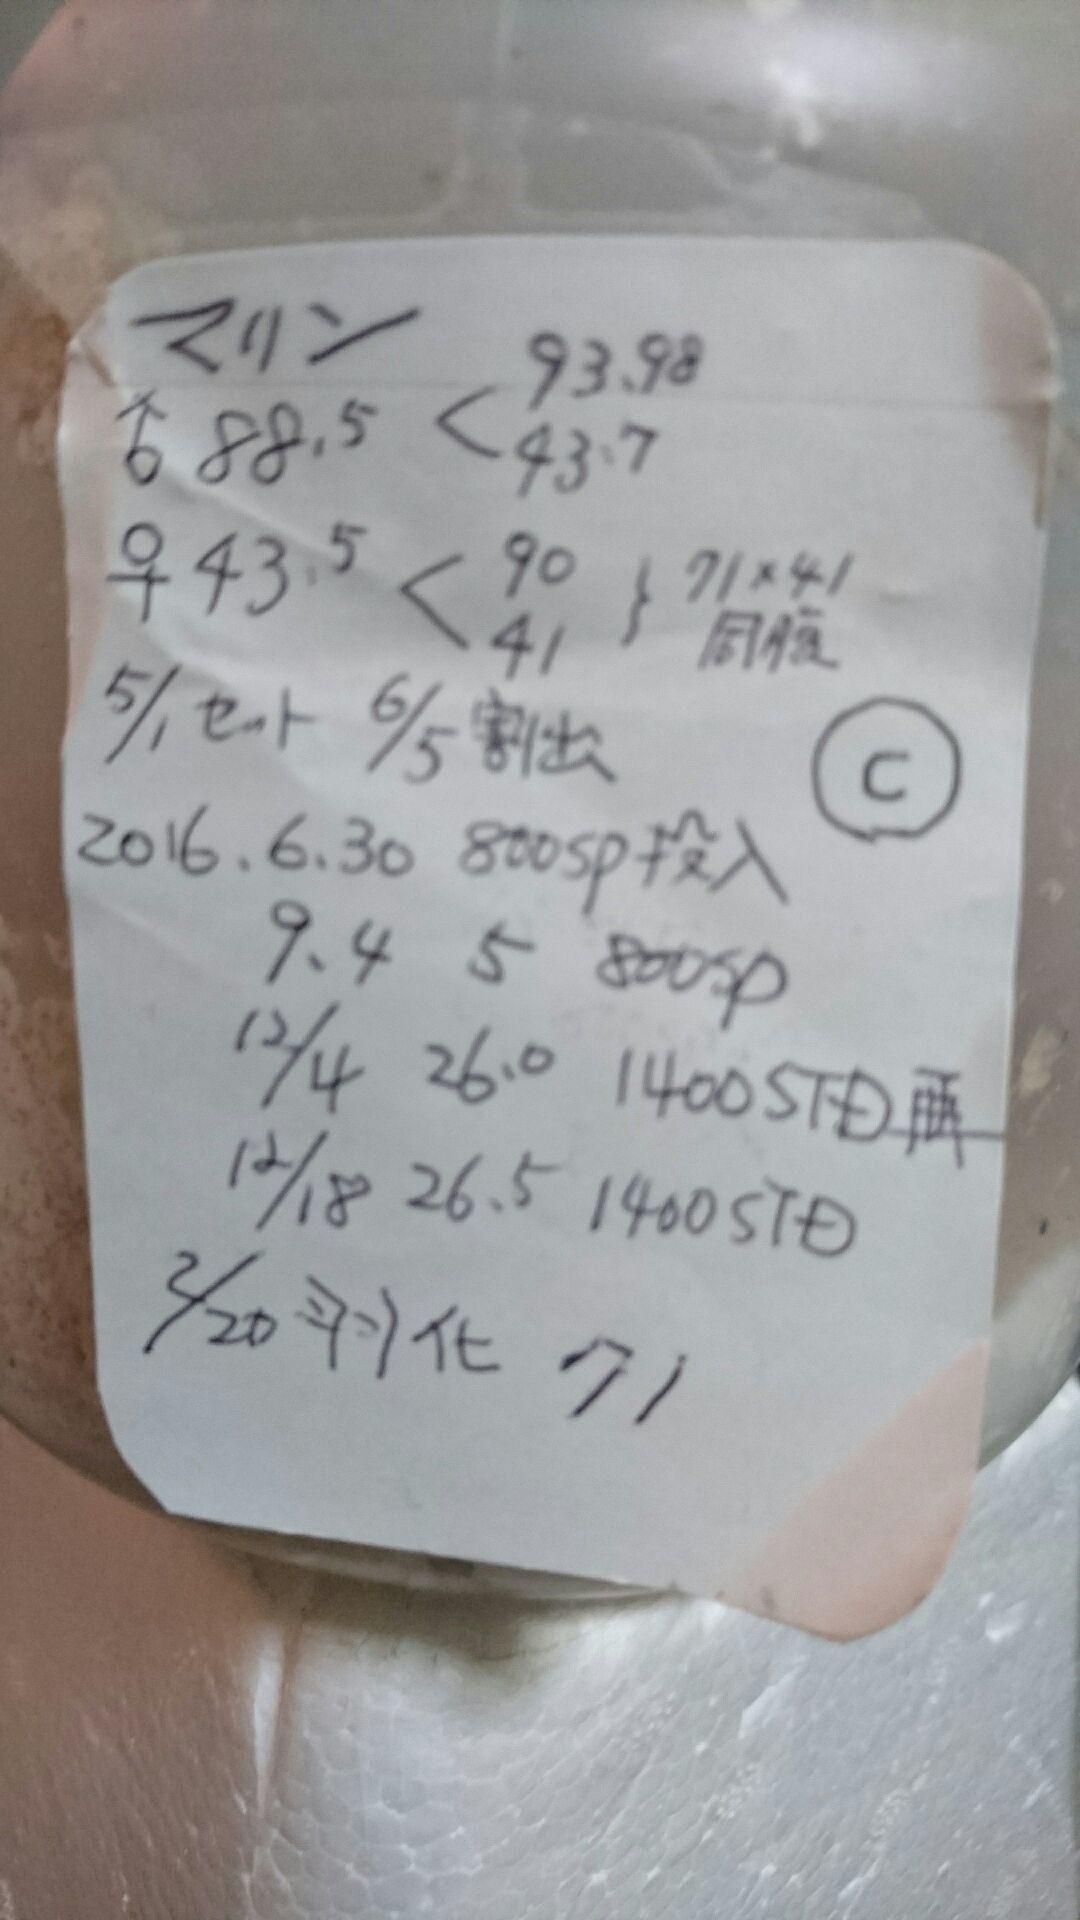 マリン
♂88.5 < 93.98
43.7
♀43.5 < 90
41 } 71×41
同腹
5/1セット 6/5割出
C
2016.6.30 800SP投入
9.4 5 800SP
12/4 26.0 1400STD再
12/18 26.5 1400STD
2/20羽化 71